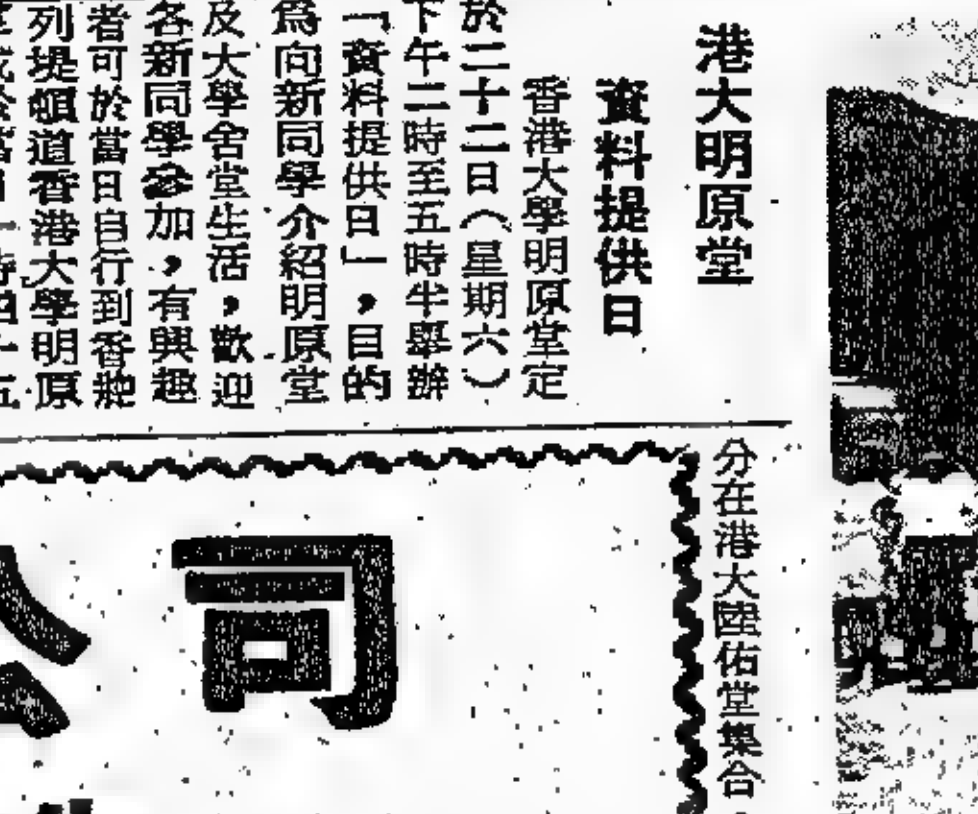 港大明原堂
資料提供日
香港大學明原堂定
於二十二日（星期六）
下午二時至五時半舉辦
「資料提供日」，目的
爲向新同學介紹明原堂
及大學舍堂生活，歡迎
各新同學參加，有興趣
者可於當日自行到香港
列堤頓道香港大學明原
分在港大陸佑堂集合，
公司